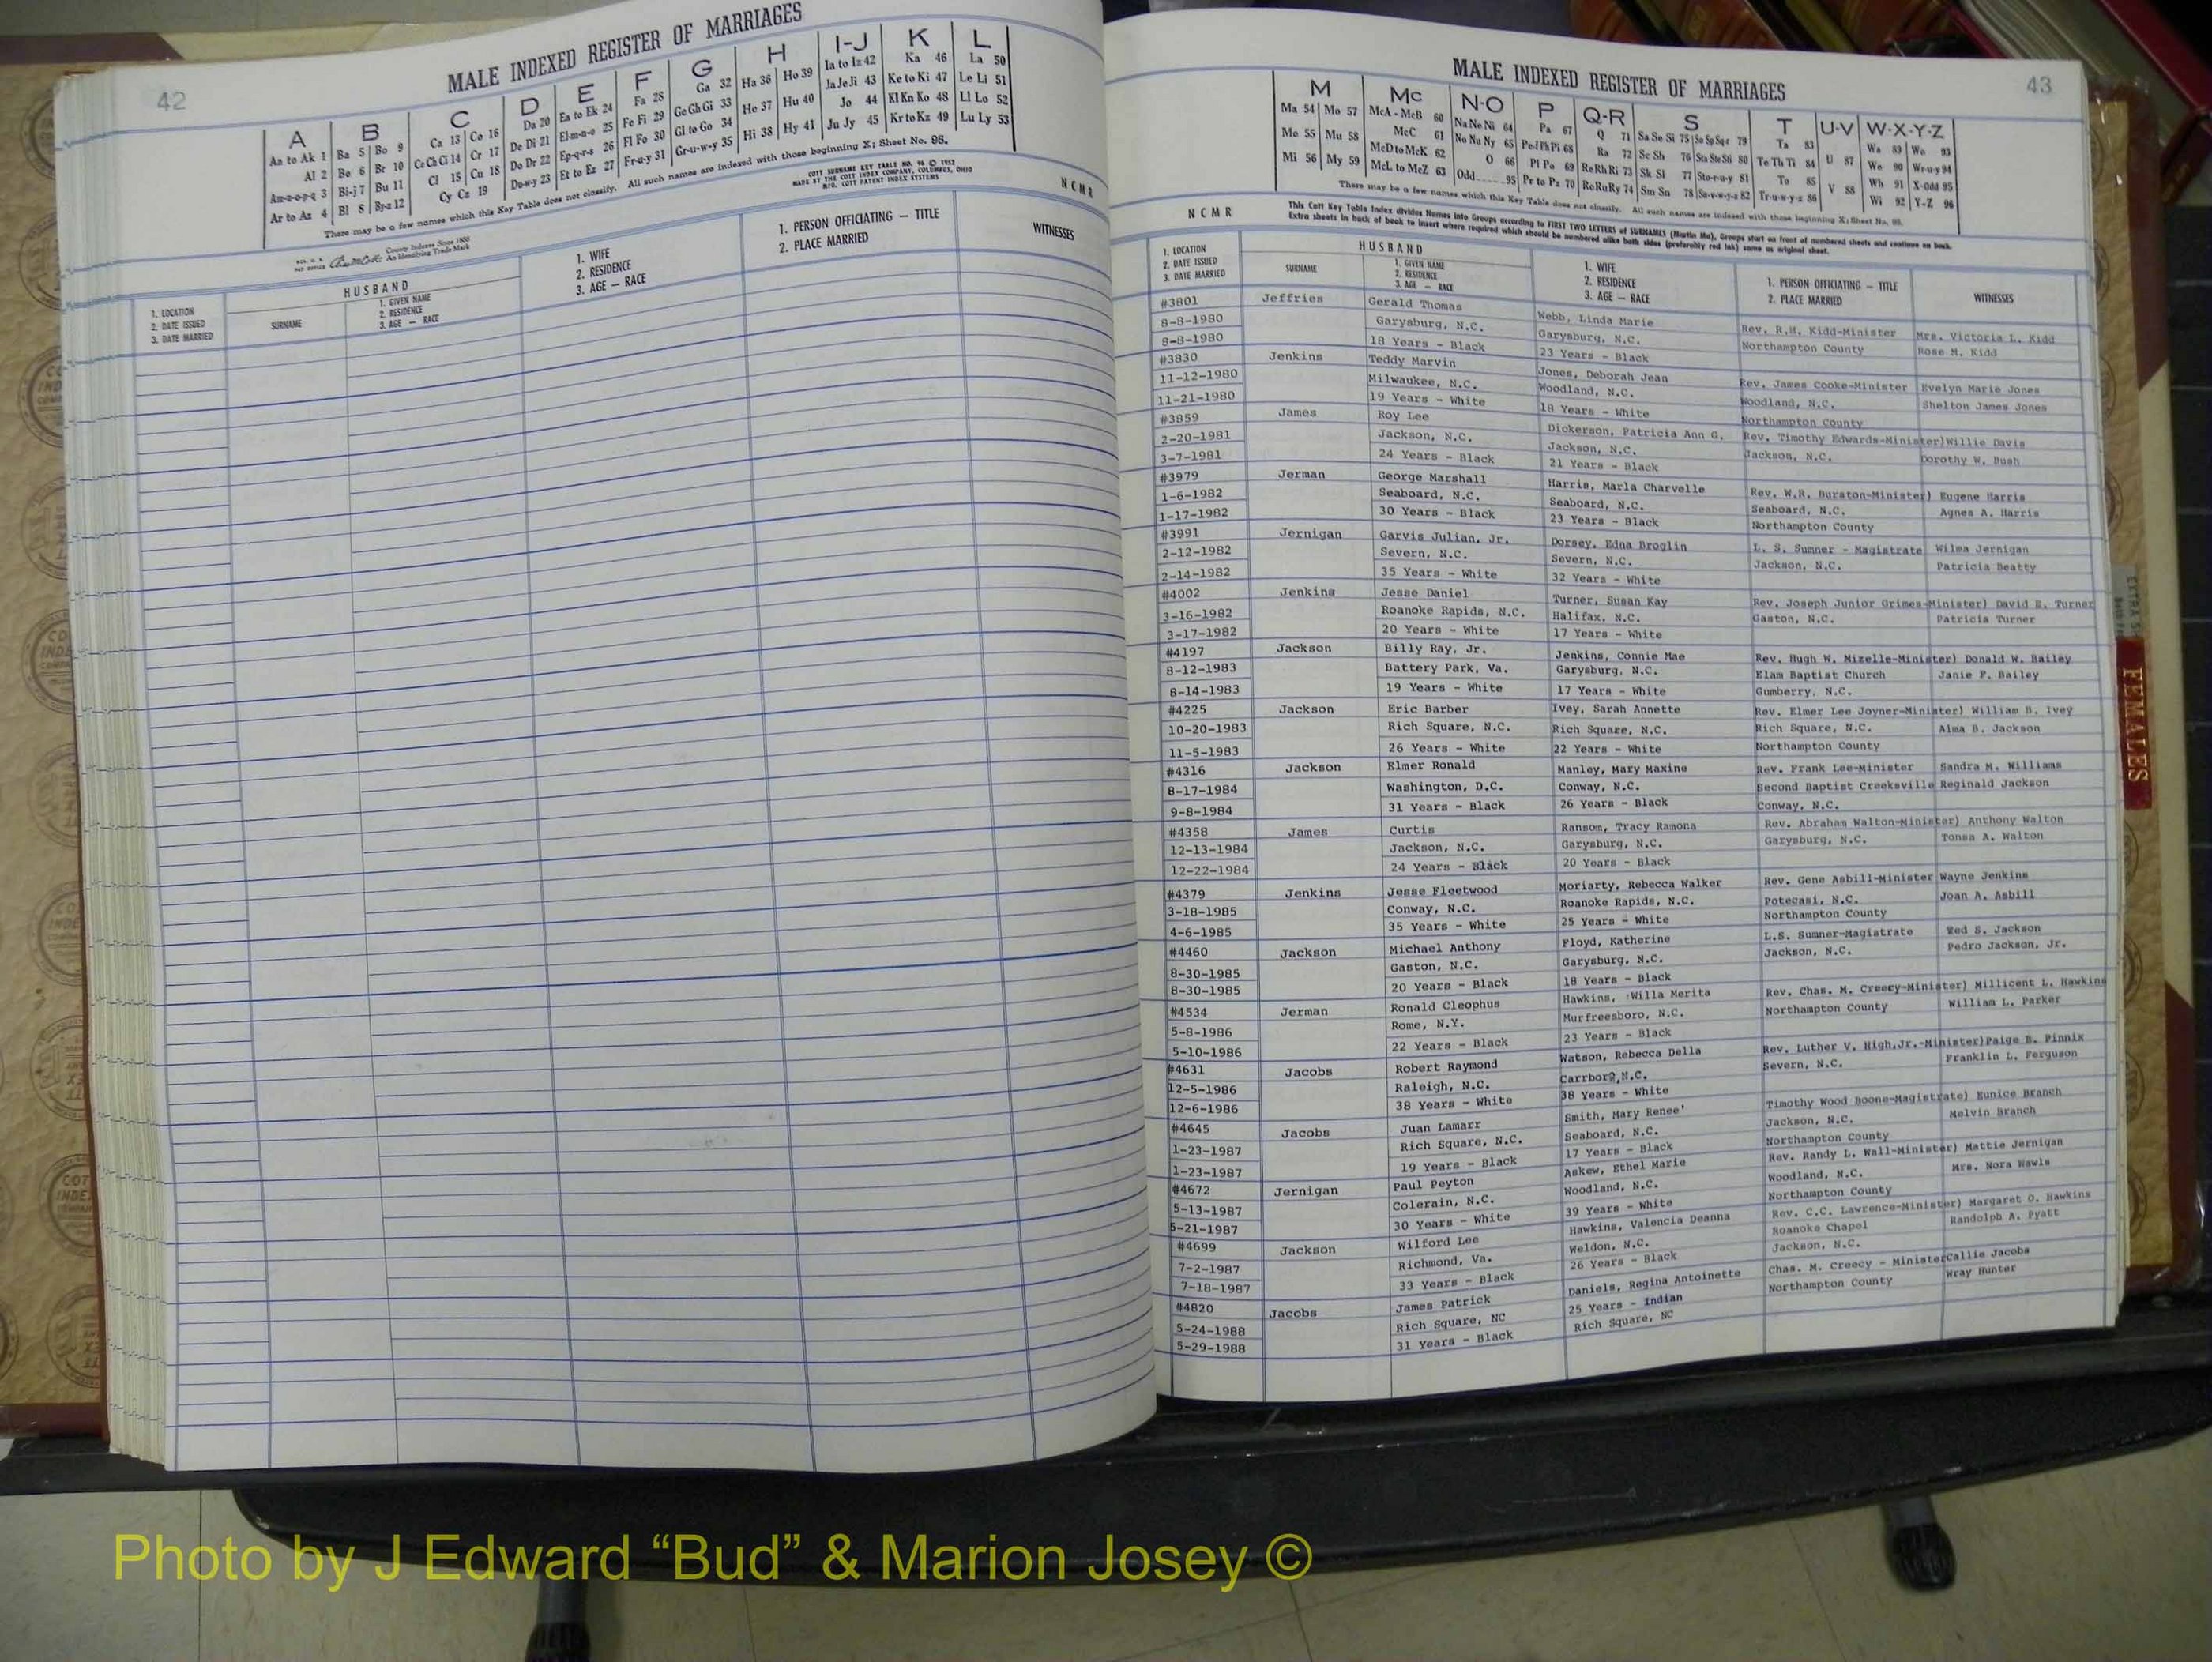 42
MALE INDEXED REGISTER OF MARRIAGES
A B C D E F G H I-J K L
Aa to Ak 1 Ba 5 Bo 9 Ca 13 Co 16 Da 20 Ea to Ek 24 Fa 28 Ga 32 Ha 36 Ho 39 Ia to Iz 42 Ka 46 La 50
Al 2 Be 6 Br 10 Ce Ch Ci 14 Cr 17 De Di 21 El-m-n-o 25 Fe Fi 29 Ge Gh Gi 33 He 37 Hu 40 Ja Je Ji 43 Ke to Ki 47 Le Li 51
Am-n-o-p-q 3 Bi-j 7 Bu 11 Cl 15 Cu 18 Do Dr 22 Ep-q-r-s 26 Fl Fo 30 Gl to Go 34 Hi 38 Hy 41 Jo 44 Kl Kn Ko 48 Ll Lo 52
Ar to Az 4 Bl 8 By-z 12 Cy Cz 19 Du-w-y 23 Et to Ez 27 Fr-u-y 31 Gr-u-w-y 35 Ju Jy 45 Kr to Kz 49 Lu Ly 53
There may be a few names which this Key Table does not classify. All such names are indexed with those beginning X; Sheet No. 95.
COTT SURNAME KEY TABLE NO. 96 © 1952
MADE BY THE COTT INDEX COMPANY, COLUMBUS, OHIO
MFG. COTT PATENT INDEX SYSTEMS
County Indexes Since 1888
An Identifying Trade Mark
N C M R
1. LOCATION
2. DATE ISSUED
3. DATE MARRIED
HUSBAND
SURNAME
1. GIVEN NAME
2. RESIDENCE
3. AGE — RACE
1. WIFE
2. RESIDENCE
3. AGE — RACE
1. PERSON OFFICIATING — TITLE
2. PLACE MARRIED
WITNESSES
43
MALE INDEXED REGISTER OF MARRIAGES
M Mc N-O P Q-R S T U-V W-X-Y-Z
Ma 54 Mo 57 McA - McB 60 Na Ne Ni 64 Pa 67 Q 71 Sa Se Si 75 So Sp Sq-r 79 Ta 83 U 87 Wa 89 Wo 93
Me 55 Mu 58 McC 61 No Nu Ny 65 Pe-f Ph Pi 68 Ra 72 Sc Sh 76 Sta Ste Sti 80 Te Th Ti 84 V 88 We 90 Wr-u-y 94
Mi 56 My 59 McD to McK 62 O 66 Pl Po 69 Re Rh Ri 73 Sk Sl 77 Sto-r-u-y 81 To 85 Wh 91 X-Odd 95
McL to McZ 63 Odd 95 Pr to Pz 70 Ro Ru Ry 74 Sm Sn 78 Su-v-w-y-z 82 Tr-u-w-y-z 86 Wi 92 Y-Z 96
There may be a few names which this Key Table does not classify. All such names are indexed with those beginning X; Sheet No. 95.
N C M R
This Cott Key Table Index divides Names into Groups according to FIRST TWO LETTERS of SURNAMES (Martin Ma), Groups start on front of numbered sheets and continue on back.
Extra sheets in back of book to insert where required which should be numbered alike both sides (preferably red ink) same as original sheet.
1. LOCATION
2. DATE ISSUED
3. DATE MARRIED
HUSBAND
SURNAME
1. GIVEN NAME
2. RESIDENCE
3. AGE — RACE
1. WIFE
2. RESIDENCE
3. AGE — RACE
1. PERSON OFFICIATING — TITLE
2. PLACE MARRIED
WITNESSES
#3801 Jeffries Gerald Thomas Webb, Linda Marie Rev. R.H. Kidd-Minister Mrs. Victoria L. Kidd
8-8-1980 Garysburg, N.C. Garysburg, N.C. Northampton County Rose M. Kidd
8-8-1980 18 Years - Black 23 Years - Black
#3830 Jenkins Teddy Marvin Jones, Deborah Jean Rev. James Cooke-Minister Evelyn Marie Jones
11-12-1980 Milwaukee, N.C. Woodland, N.C. Woodland, N.C. Shelton James Jones
11-21-1980 19 Years - White 18 Years - White Northampton County
#3859 James Roy Lee Dickerson, Patricia Ann G. Rev. Timothy Edwards-Minister) Willie Davis
2-20-1981 Jackson, N.C. Jackson, N.C. Jackson, N.C. Dorothy W. Bush
3-7-1981 24 Years - Black 21 Years - Black
#3979 Jerman George Marshall Harris, Marla Charvelle Rev. W.R. Burston-Minister) Eugene Harris
1-6-1982 Seaboard, N.C. Seaboard, N.C. Seaboard, N.C. Agnes A. Harris
1-17-1982 30 Years - Black 23 Years - Black Northampton County
#3991 Jernigan Garvis Julian, Jr. Dorsey, Edna Broglin L. S. Sumner - Magistrate Wilma Jernigan
2-12-1982 Severn, N.C. Severn, N.C. Jackson, N.C. Patricia Beatty
2-14-1982 35 Years - White 32 Years - White
#4002 Jenkins Jesse Daniel Turner, Susan Kay Rev. Joseph Junior Grimes-Minister) David E. Turner
3-16-1982 Roanoke Rapids, N.C. Halifax, N.C. Gaston, N.C. Patricia Turner
3-17-1982 20 Years - White 17 Years - White
#4197 Jackson Billy Ray, Jr. Jenkins, Connie Mae Rev. Hugh W. Mizelle-Minister) Donald W. Bailey
8-12-1983 Battery Park, Va. Garysburg, N.C. Elam Baptist Church Janie P. Bailey
8-14-1983 19 Years - White 17 Years - White Gumberry, N.C.
#4225 Jackson Eric Barber Ivey, Sarah Annette Rev. Elmer Lee Joyner-Minister) William B. Ivey
10-20-1983 Rich Square, N.C. Rich Square, N.C. Rich Square, N.C. Alma B. Jackson
11-5-1983 26 Years - White 22 Years - White Northampton County
#4316 Jackson Elmer Ronald Manley, Mary Maxine Rev. Frank Lee-Minister Sandra M. Williams
8-17-1984 Washington, D.C. Conway, N.C. Second Baptist Creeksville Reginald Jackson
9-8-1984 31 Years - Black 26 Years - Black Conway, N.C.
#4358 James Curtis Ransom, Tracy Ramona Rev. Abraham Walton-Minister) Anthony Walton
12-13-1984 Jackson, N.C. Garysburg, N.C. Garysburg, N.C. Tonsa A. Walton
12-22-1984 24 Years - Black 20 Years - Black
#4379 Jenkins Jesse Fleetwood Moriarty, Rebecca Walker Rev. Gene Asbill-Minister Wayne Jenkins
3-18-1985 Conway, N.C. Roanoke Rapids, N.C. Potecasi, N.C. Joan A. Asbill
4-6-1985 35 Years - White 25 Years - White Northampton County
#4460 Jackson Michael Anthony Floyd, Katherine L.S. Sumner-Magistrate S. Jackson
8-30-1985 Gaston, N.C. Garysburg, N.C. Jackson, N.C. Pedro Jackson, Jr.
8-30-1985 20 Years - Black 18 Years - Black
#4534 Jerman Ronald Cleophus Hawkins, Willa Merita Rev. Chas. M. Creecy-Minister) Millicent L. Hawkins
5-8-1986 Rome, N.Y. Murfreesboro, N.C. Northampton County William L. Parker
5-10-1986 22 Years - Black 23 Years - Black
#4631 Jacobs Robert Raymond Watson, Rebecca Della Rev. Luther V. High,Jr.-Minister)Paige B. Pinnix
12-5-1986 Raleigh, N.C. Carrboro,N.C. Severn, N.C. Franklin L. Ferguson
12-6-1986 38 Years - White 38 Years - White
#4645 Jacobs Juan Lamarr Smith, Mary Renee' Timothy Wood Boone-Magistrate) Eunice Branch
1-23-1987 Rich Square, N.C. Seaboard, N.C. Jackson, N.C. Melvin Branch
1-23-1987 19 Years - Black 17 Years - Black Northampton County
#4672 Jernigan Paul Peyton Askew, Ethel Marie Rev. Randy L. Wall-Minister) Mattie Jernigan
5-13-1987 Colerain, N.C. Woodland, N.C. Woodland, N.C. Mrs. Nora
5-21-1987 30 Years - White 39 Years - White Northampton County
#4699 Jackson Wilford Lee Hawkins, Valencia Deanna Rev. C.C. Lawrence-Minister) Margaret O. Hawkins
7-2-1987 Richmond, Va. Weldon, N.C. Roanoke Chapel Randolph A. Pyatt
7-18-1987 33 Years - Black 26 Years - Black Jackson, N.C.
#4820 Jacobs James Patrick Daniels, Regina Antoinette Chas. M. Creecy - Minister Callie Jacobs
5-24-1988 Rich Square, NC 25 Years - Indian Northampton County Wray Hunter
5-29-1988 31 Years - Black Rich Square, NC
FEMALES
Photo by J Edward “Bud” & Marion Josey ©